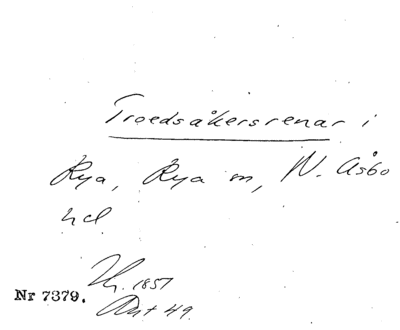 Troedsåkersrenar i
Rya, Rya sn, N. Åsbo
hd
Nr 7379.
1857
Ant 49.